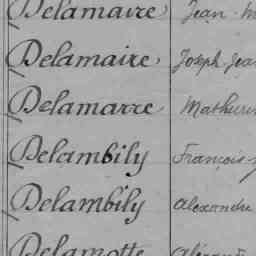 Delamaire Jean
Delamaire Joseph Jea
Delamarre Mathurin
Delambily François
Delambily Alexandre
Delamotte